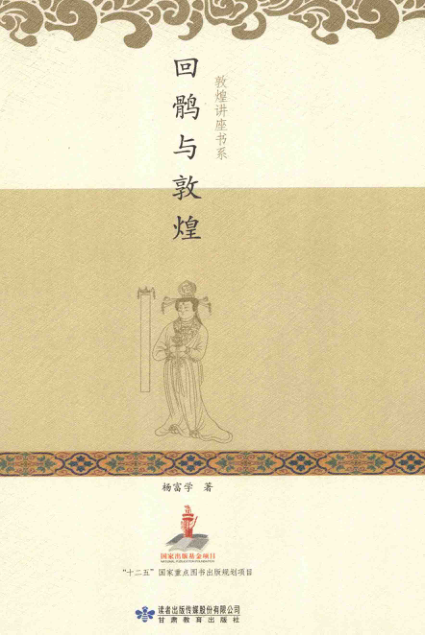 敦煌讲座书系
回鹘与敦煌
杨富学 著
国家出版基金项目
“十二五”国家重点图书出版规划项目
读者出版传媒股份有限公司
甘肃教育出版社